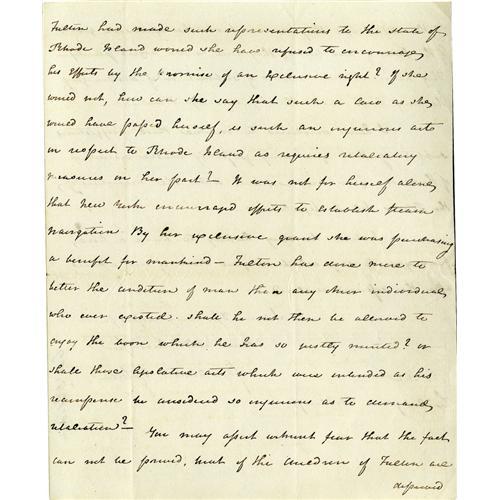 Fulton had made such representations to the state of
Rhode Island would she have refused to encourage
his efforts by the promise of an exclusive right? If she
would not, how can she say that such a law as she
would have passed herself, is such an injurious act
in respect to Rhode Island as requires retaliatory
measures on her part? — It was not for herself alone
that New York encouraged efforts to establish steam
navigation By her exclusive grant she was purchasing
a benefit for mankind — Fulton has done more to
better the condition of man than any other individual
who ever existed. shall he not then be allowed to
enjoy the boon which he has so justly merited? or
shall those legislative acts which were intended as his
recompense be considered so injurious as to demand
retaliation? — You may assert without fear that the fact
can not be proved, that if the children of Fulton are
deprived